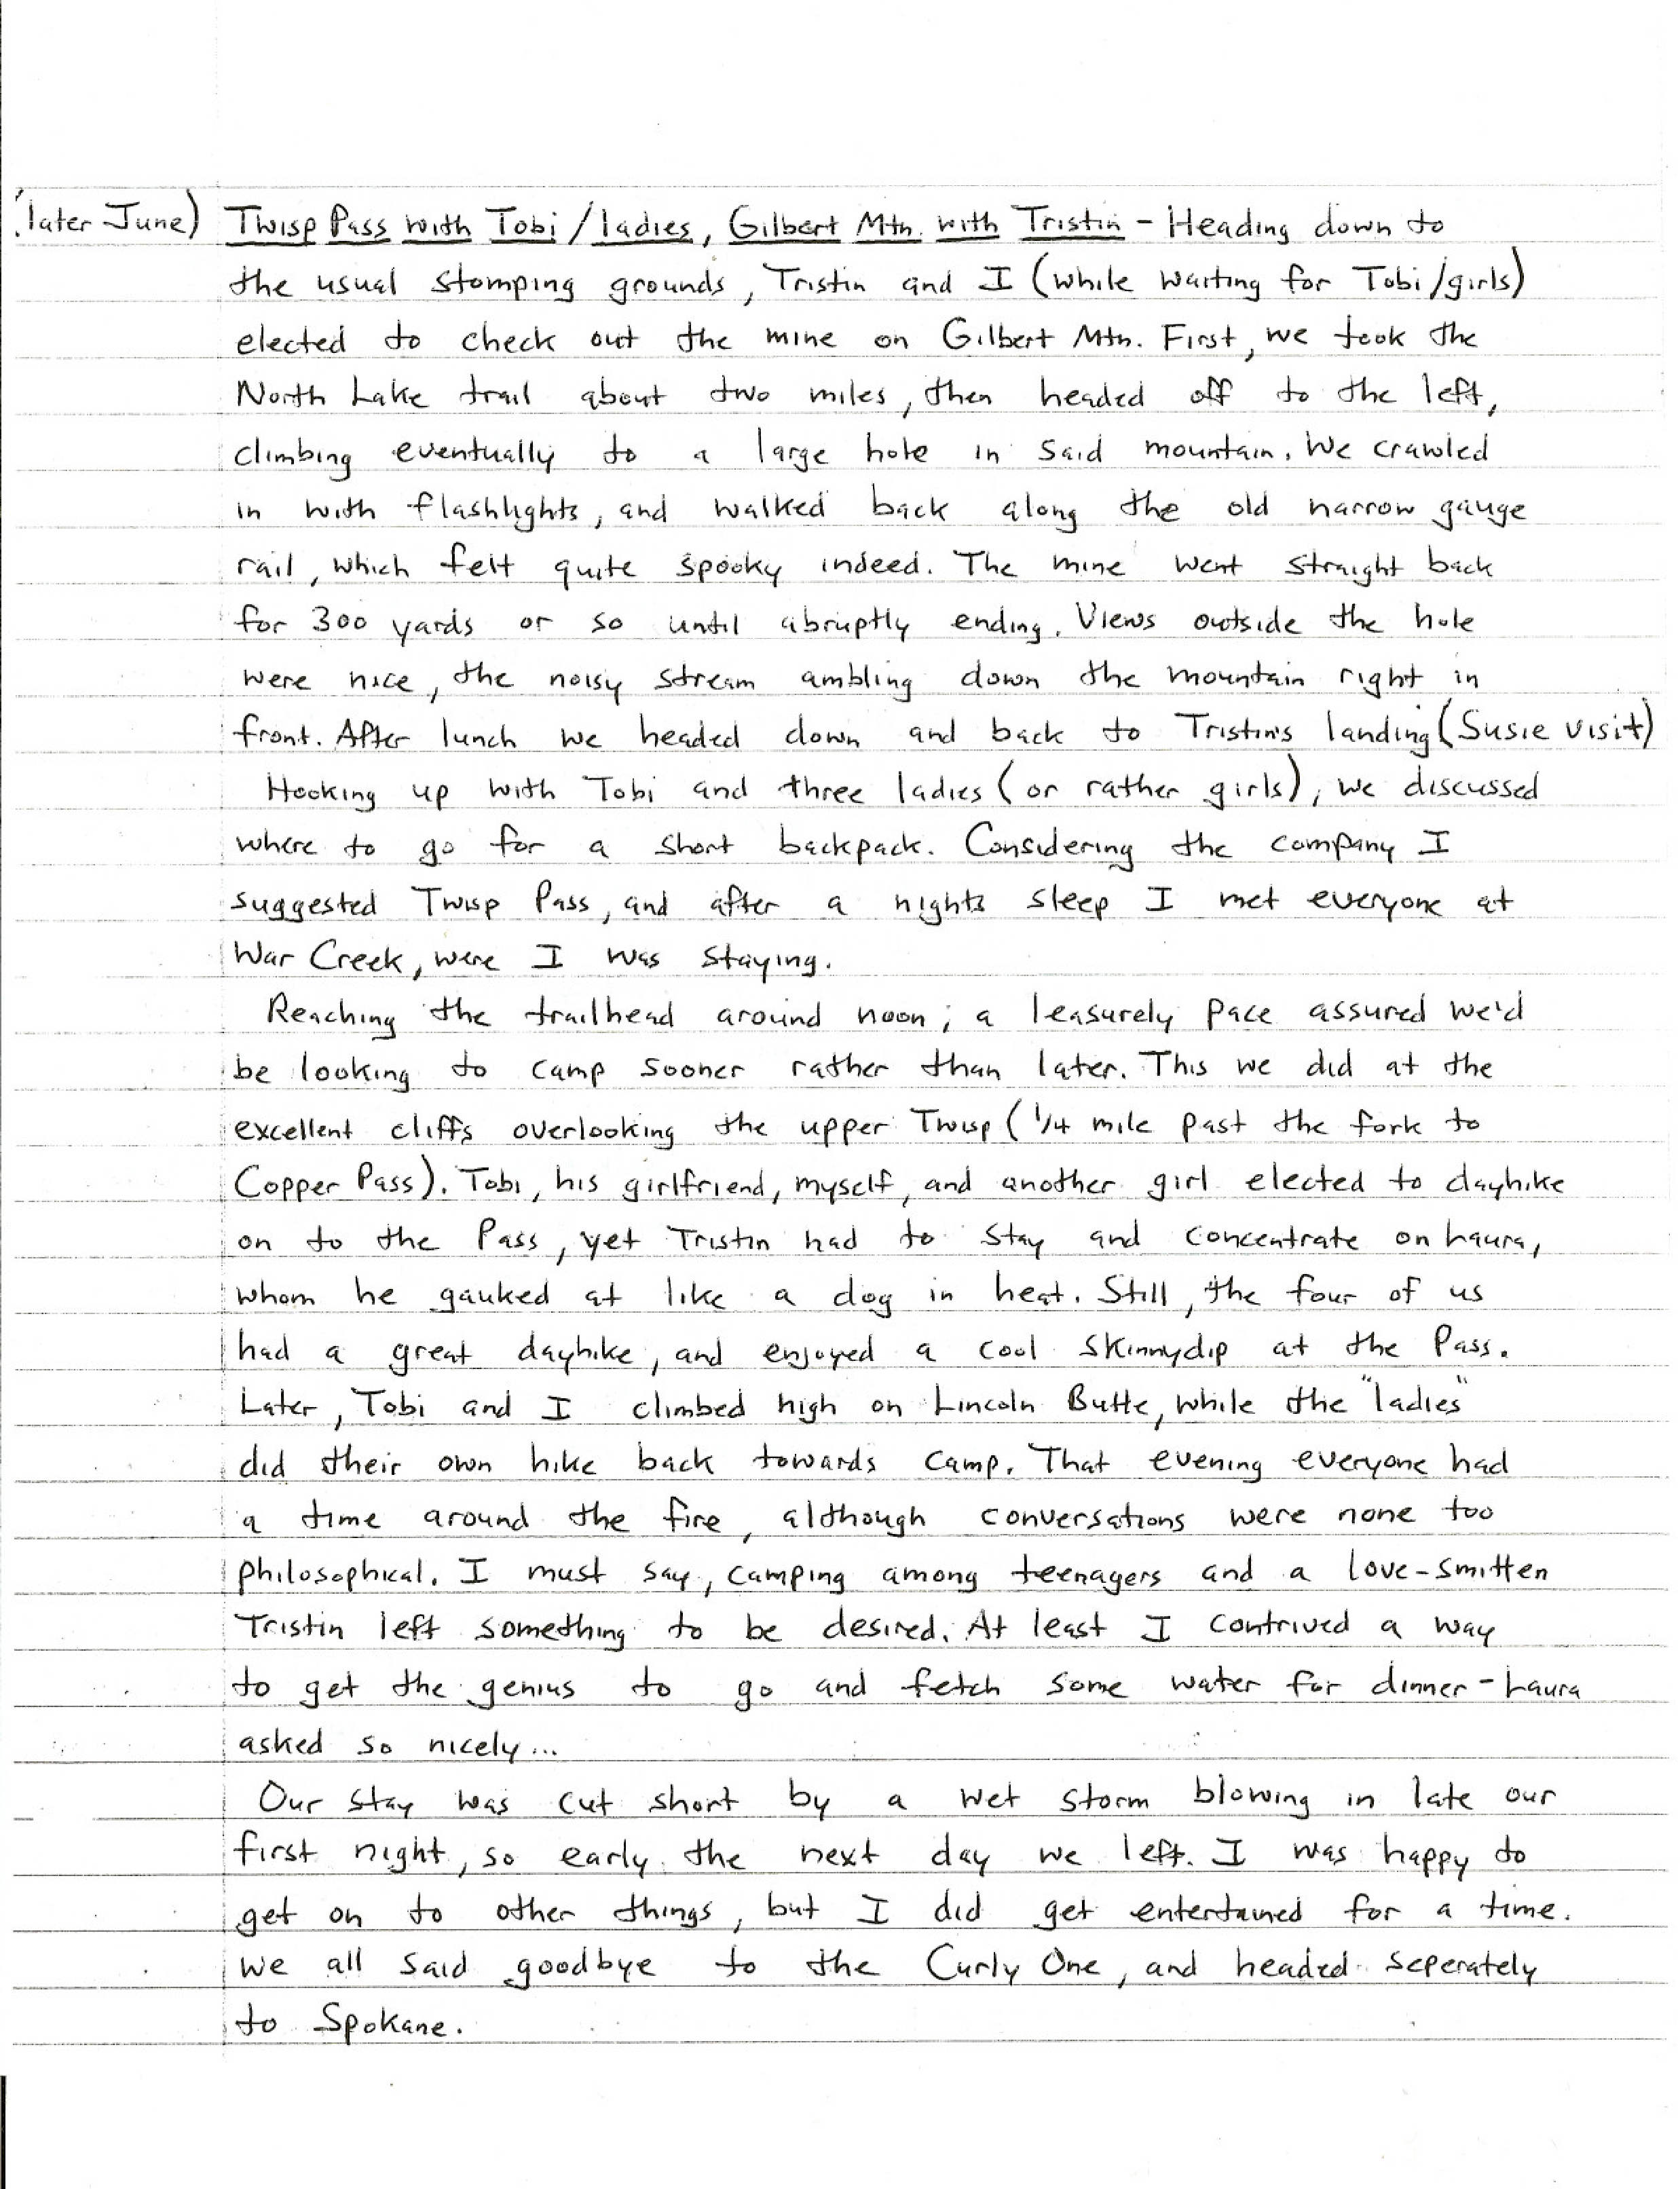 (later June) Twisp Pass with Tobi/ladies, Gilbert Mtn. with Tristin - Heading down to
the usual stomping grounds, Tristin and I (while waiting for Tobi/girls)
elected to check out the mine on Gilbert Mtn. First, we took the
North Lake trail about two miles, then headed off to the left,
climbing eventually to a large hole in said mountain. We crawled
in with flashlights, and walked back along the old narrow gauge
rail, which felt quite spooky indeed. The mine went straight back
for 300 yards or so until abruptly ending. Views outside the hole
were nice, the noisy stream ambling down the mountain right in
front. After lunch we headed down and back to Tristin's landing (Susie visit)
Hooking up with Tobi and three ladies (or rather girls), we discussed
where to go for a short backpack. Considering the company I
suggested Twisp Pass, and after a nights sleep I met everyone at
War Creek, were I was staying.
Reaching the trailhead around noon; a leasurely pace assured we'd
be looking to camp sooner rather than later. This we did at the
excellent cliffs overlooking the upper Twisp (1/4 mile past the fork to
Copper Pass). Tobi, his girlfriend, myself, and another girl elected to dayhike
on to the Pass, yet Tristin had to stay and concentrate on Laura,
whom he gauked at like a dog in heat. Still, the four of us
had a great dayhike, and enjoyed a cool skinnydip at the Pass.
Later, Tobi and I climbed high on Lincoln Butte, while the "ladies"
did their own hike back towards camp. That evening everyone had
a time around the fire, although conversations were none too
philosophical. I must say, camping among teenagers and a love-smitten
Tristin left something to be desired. At least I contrived a way
to get the genius to go and fetch some water for dinner - Laura
asked so nicely...
Our stay was cut short by a wet storm blowing in late our
first night, so early the next day we left. I was happy to
get on to other things, but I did get entertained for a time.
We all said goodbye to the Curly One, and headed seperately
to Spokane.